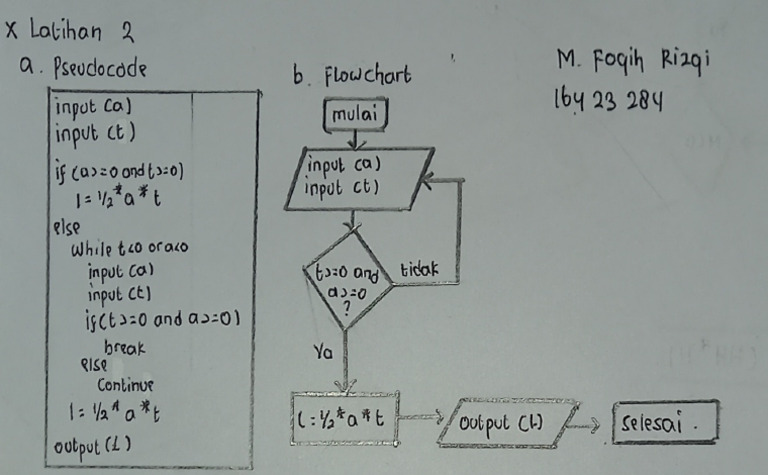 X Latihan 2
a. Pseudocode
input (a)
input (t)
if (a>=0 and t>=0)
l = 1/2 * a * t
else
while t<0 or a<0
input (a)
input (t)
if (t>=0 and a>=0)
break
else
Continue
l = 1/2 * a * t
output (L)
b. Flowchart
mulai
input (a)
input (t)
t>=0 and
a>=0
?
tidak
Ya
L = 1/2 * a * t
output (L)
Selesai.
M. Foqih Rizqi
164 23 284